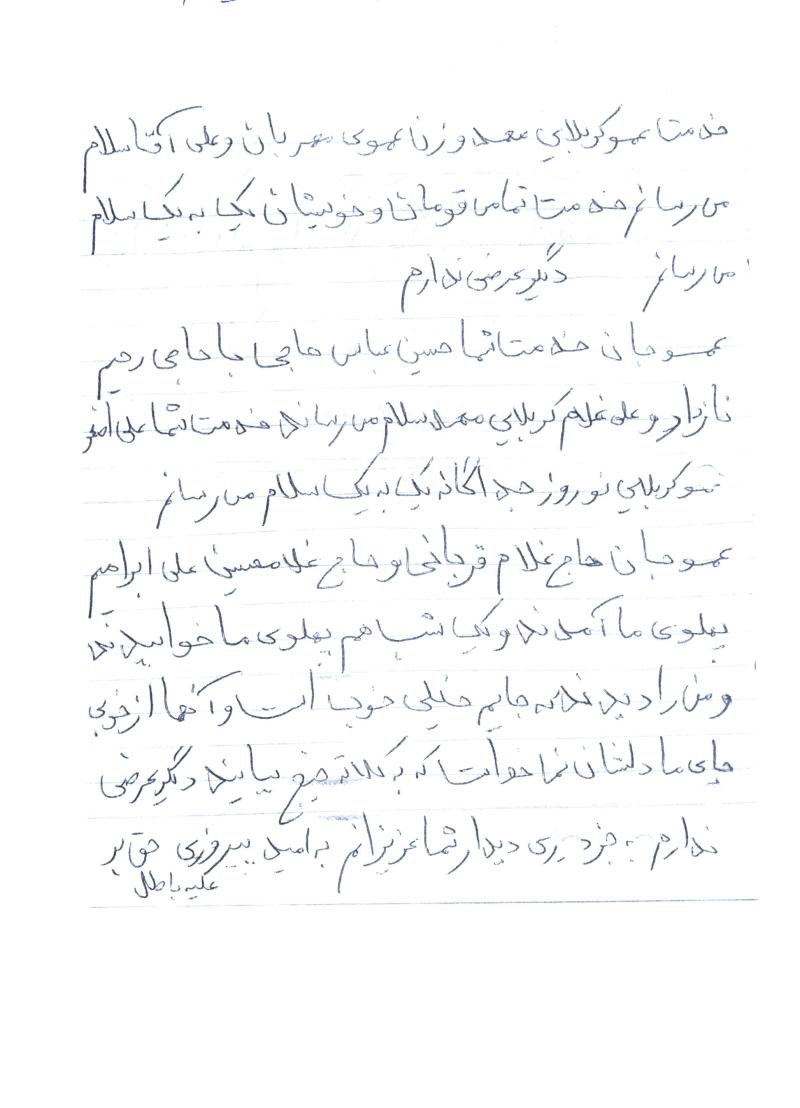 خدمت عمو کربلایی محمد و زن عموی مهربان و علی آقا سلام
می رسانم خدمت تمامی قومان و خویشان یک به یک سلام
می رسانم دگر عرضی ندارم
عمو جان خدمت شما حسین عباس حاجی بابا حاجی رحیم
نازدار و علی غلام کربلایی محمد سلام می رساند خدمت شما علی اصغر
کربلایی نوروز جداگانه یک به یک سلام می رسانم
عمو جان حاج غلام قربانی و حاج غلامحسین علی ابراهیم
پهلوی ما آمدند و یک شب هم پهلوی ما خوابیدند
و من را دیدند که جایم خیلی خوب است و آنها از خوبی
جای ما دلشان نمی خواست که به کلاته بیایند دگر عرضی
ندارم به جز دوری دیدار شما عزیزانم به امید پیروزی حق بر
علیه باطل